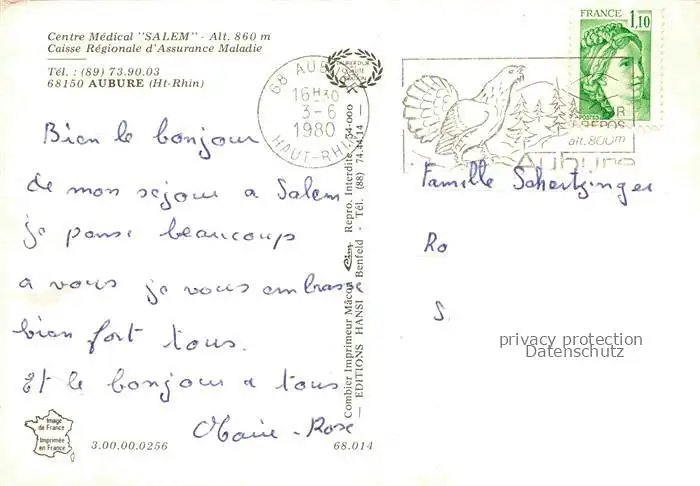 Centre Médical "SALEM" - Alt. 860 m
Caisse Régionale d'Assurance Maladie
Tél. : (89) 73.90.03
68150 AUBURE (Ht-Rhin)
68 AUBURE
16H30
3-6
1980
HAUT-RHIN
FRANCE
1,10
POSTES
AIR
REPOS
alt. 800m
Aubure
Bien le bonjour
de mon séjour a Salem
je pense beaucoup
a vous je vous embrasse
bien fort tous.
Et le bonjour a tous
Marie-Rose
Famille Schertzinger
Ro
S.
privacy protection
Datenschutz
Combier Imprimeur Mâcon Cim Repro. Interdite
EDITIONS HANSI Benfeld - Tél. (88) 74.44.14
Image de France
Imprimée en France
3.00.00.0256
68.014